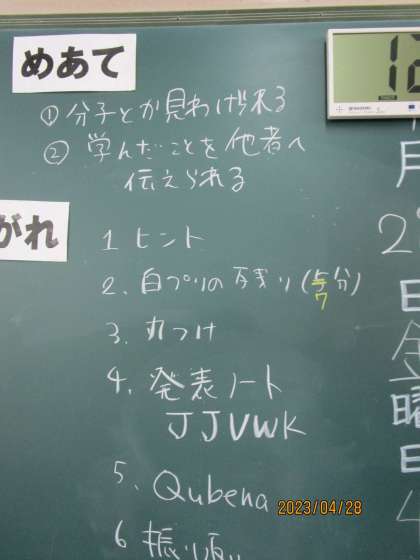 めあて
① 分子とか見わけ出来る
② 学んだことを他者へ
伝えられる
がれ
1 ヒント
2. 自プリの残り(5分)
7
3. 丸つけ
4. 発表ノート
JJVWK
5. Qubena
6 振り返
月
2
日
金
曜
日
2023/04/28